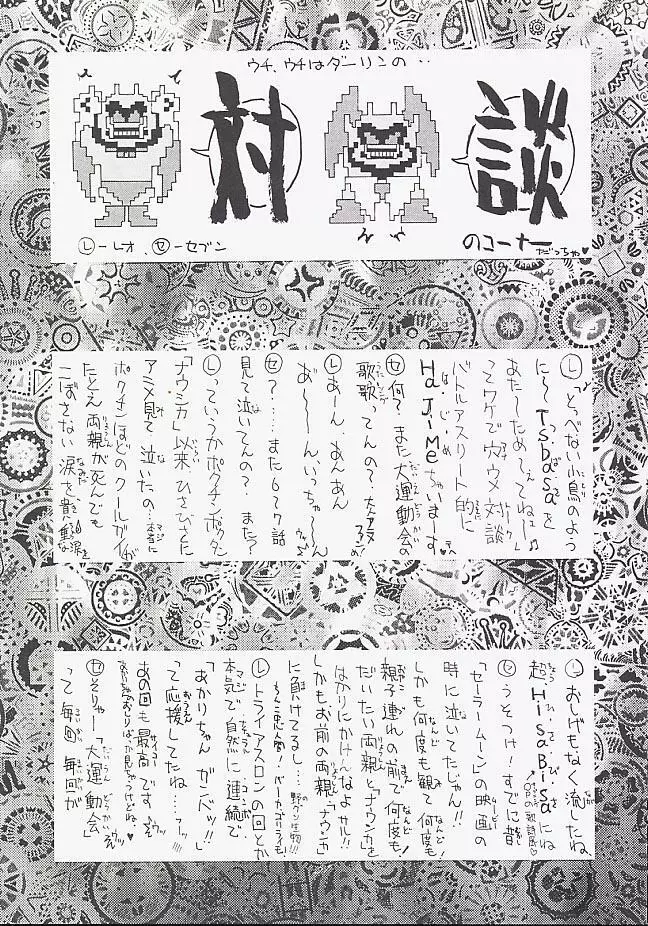 ウチ、ウチはダーリンの‥
対談
のコーナー
だっちゃ♥
Ⓛーレオ、㋝ーセブン
Ⓛ「とべない小鳥のよう
に〜TSubaSaを
あた〜ためてえてねェ〜」♪
ってワケでウワサの対談
バトルアスリート的に
HaJiMeちゃいま〜す。
㋝何？また大運動会の
歌歌ってんの？
Ⓛあーん、あんあん
あ〜〜ん、いっちゃ〜〜ん
㋝？……また6て7話
見て泣いてんの？また？
Ⓛっていうかボクチンボクタン
「ナウシカ」以来ひさびさに
アニメ見て泣いたの。
ボクチンほどのクールガイが
たとえ両親が死んでも
こぼさない涙を
Ⓛおしげもなく流したね、
超HiSaBiSaにね
㋝うそつけ！すでに昔
「セーラームーン」の映画の
時に泣いてたじゃん!!
しかも何度も観て何度も！
親子連れの前で何度も！
だいたい両親と「ナウシカ」を
はかりにかけんなよサル!!
しかもお前の両親「ナウシカ」
に負けてるし…
Ⓛトライアスロンの回とか
本気で自然に連続で
「あかりちゃんガンバッ!!」
って応援してたね…
あの回も最高です。
㋝そりゃー「大運動会」
って毎回毎回が